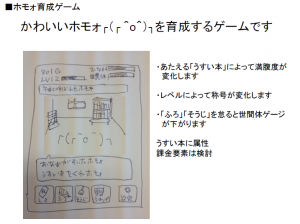 ■ホモォ育成ゲーム
かわいいホモォ┌(┌ ^o^)┐を育成するゲームです
・あたえる「うすい本」によって満腹度が
変化します
・レベルによって称号が変化します
・「ふろ」「そうじ」を怠ると世間体ゲージ
が下がります
うすい本に属性
課金要素は検討
┌(┌ ^o^)┐
おなかがすいたホモォ
うすい本をくれホモォ